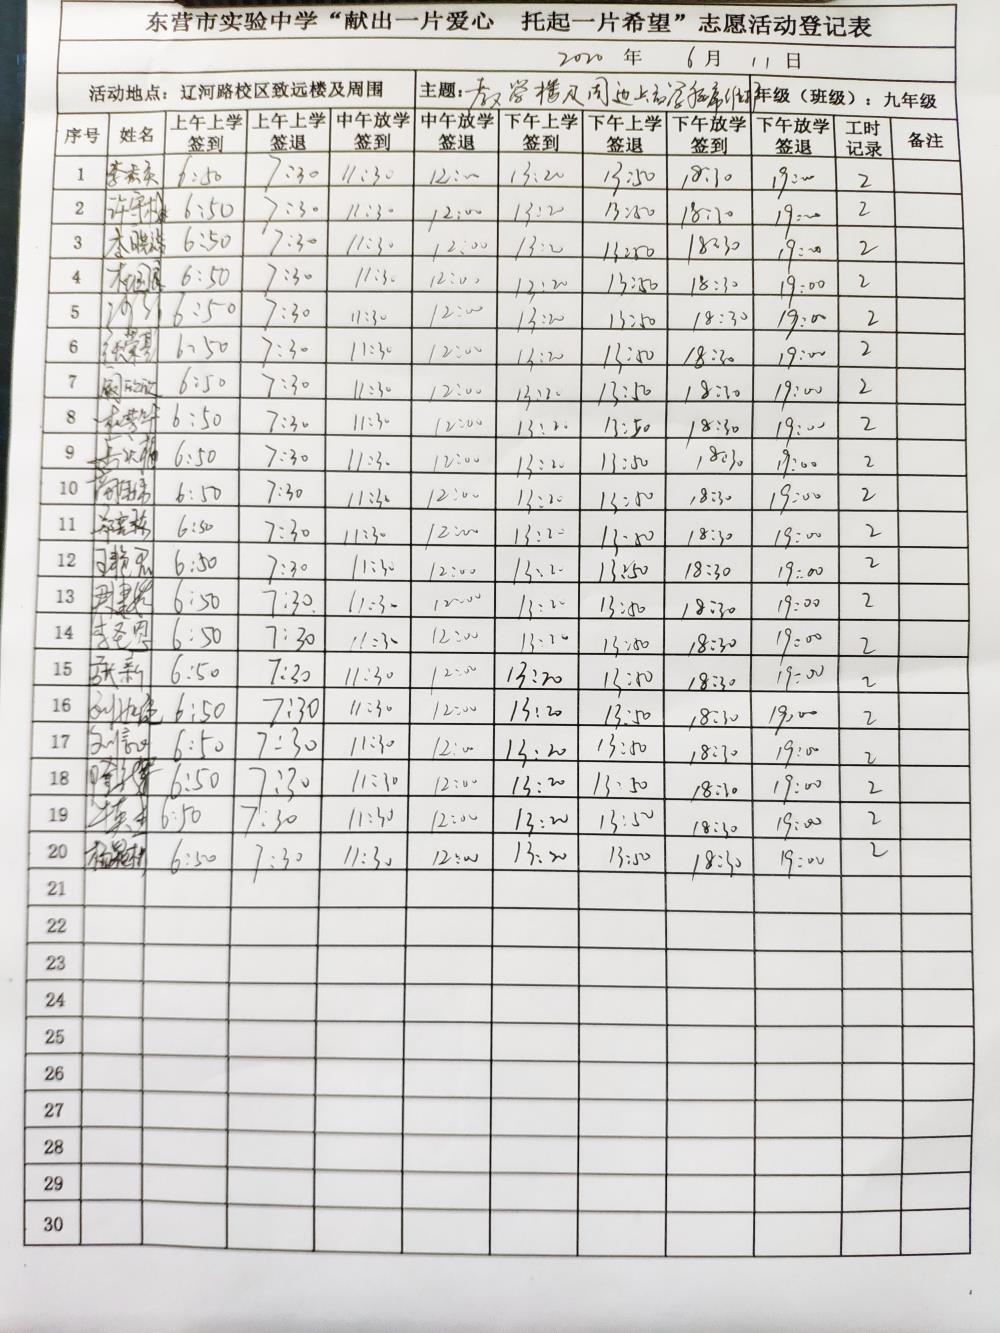 东营市实验中学“献出一片爱心 托起一片希望”志愿活动登记表
2020 年 6 月 11 日
活动地点：辽河路校区致远楼及周围 主题：教学楼及周边上放学秩序维护 年级（班级）：九年级
序号 姓名 上午上学签到 上午上学签退 中午放学签到 中午放学签退 下午上学签到 下午上学签退 下午放学签到 下午放学签退 工时记录 备注
1 6:50 7:30 11:30 12:00 13:20 13:50 18:30 19:00 2
2 6:50 7:30 11:30 12:00 13:20 13:50 18:30 19:00 2
3 6:50 7:30 11:30 12:00 13:20 13:50 18:30 19:00 2
4 6:50 7:30 11:30 12:00 13:20 13:50 18:30 19:00 2
5 6:50 7:30 11:30 12:00 13:20 13:50 18:30 19:00 2
6 6:50 7:30 11:30 12:00 13:20 13:50 18:30 19:00 2
7 6:50 7:30 11:30 12:00 13:20 13:50 18:30 19:00 2
8 6:50 7:30 11:30 12:00 13:20 13:50 18:30 19:00 2
9 6:50 7:30 11:30 12:00 13:20 13:50 18:30 19:00 2
10 6:50 7:30 11:30 12:00 13:20 13:50 18:30 19:00 2
11 6:50 7:30 11:30 12:00 13:20 13:50 18:30 19:00 2
12 6:50 7:30 11:30 12:00 13:20 13:50 18:30 19:00 2
13 6:50 7:30 11:30 12:00 13:20 13:50 18:30 19:00 2
14 李圣恩 6:50 7:30 11:30 12:00 13:20 13:50 18:30 19:00 2
15 张新 6:50 7:30 11:30 12:00 13:20 13:50 18:30 19:00 2
16 6:50 7:30 11:30 12:00 13:20 13:50 18:30 19:00 2
17 6:50 7:30 11:30 12:00 13:20 13:50 18:30 19:00 2
18 6:50 7:30 11:30 12:00 13:20 13:50 18:30 19:00 2
19 6:50 7:30 11:30 12:00 13:20 13:50 18:30 19:00 2
20 6:50 7:30 11:30 12:00 13:20 13:50 18:30 19:00 2
21
22
23
24
25
26
27
28
29
30